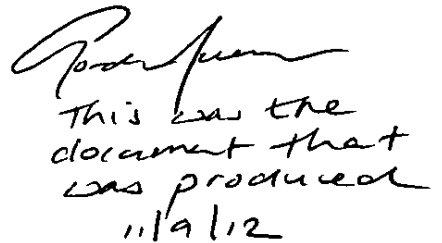 This was the
document that
was produced
11/9/12